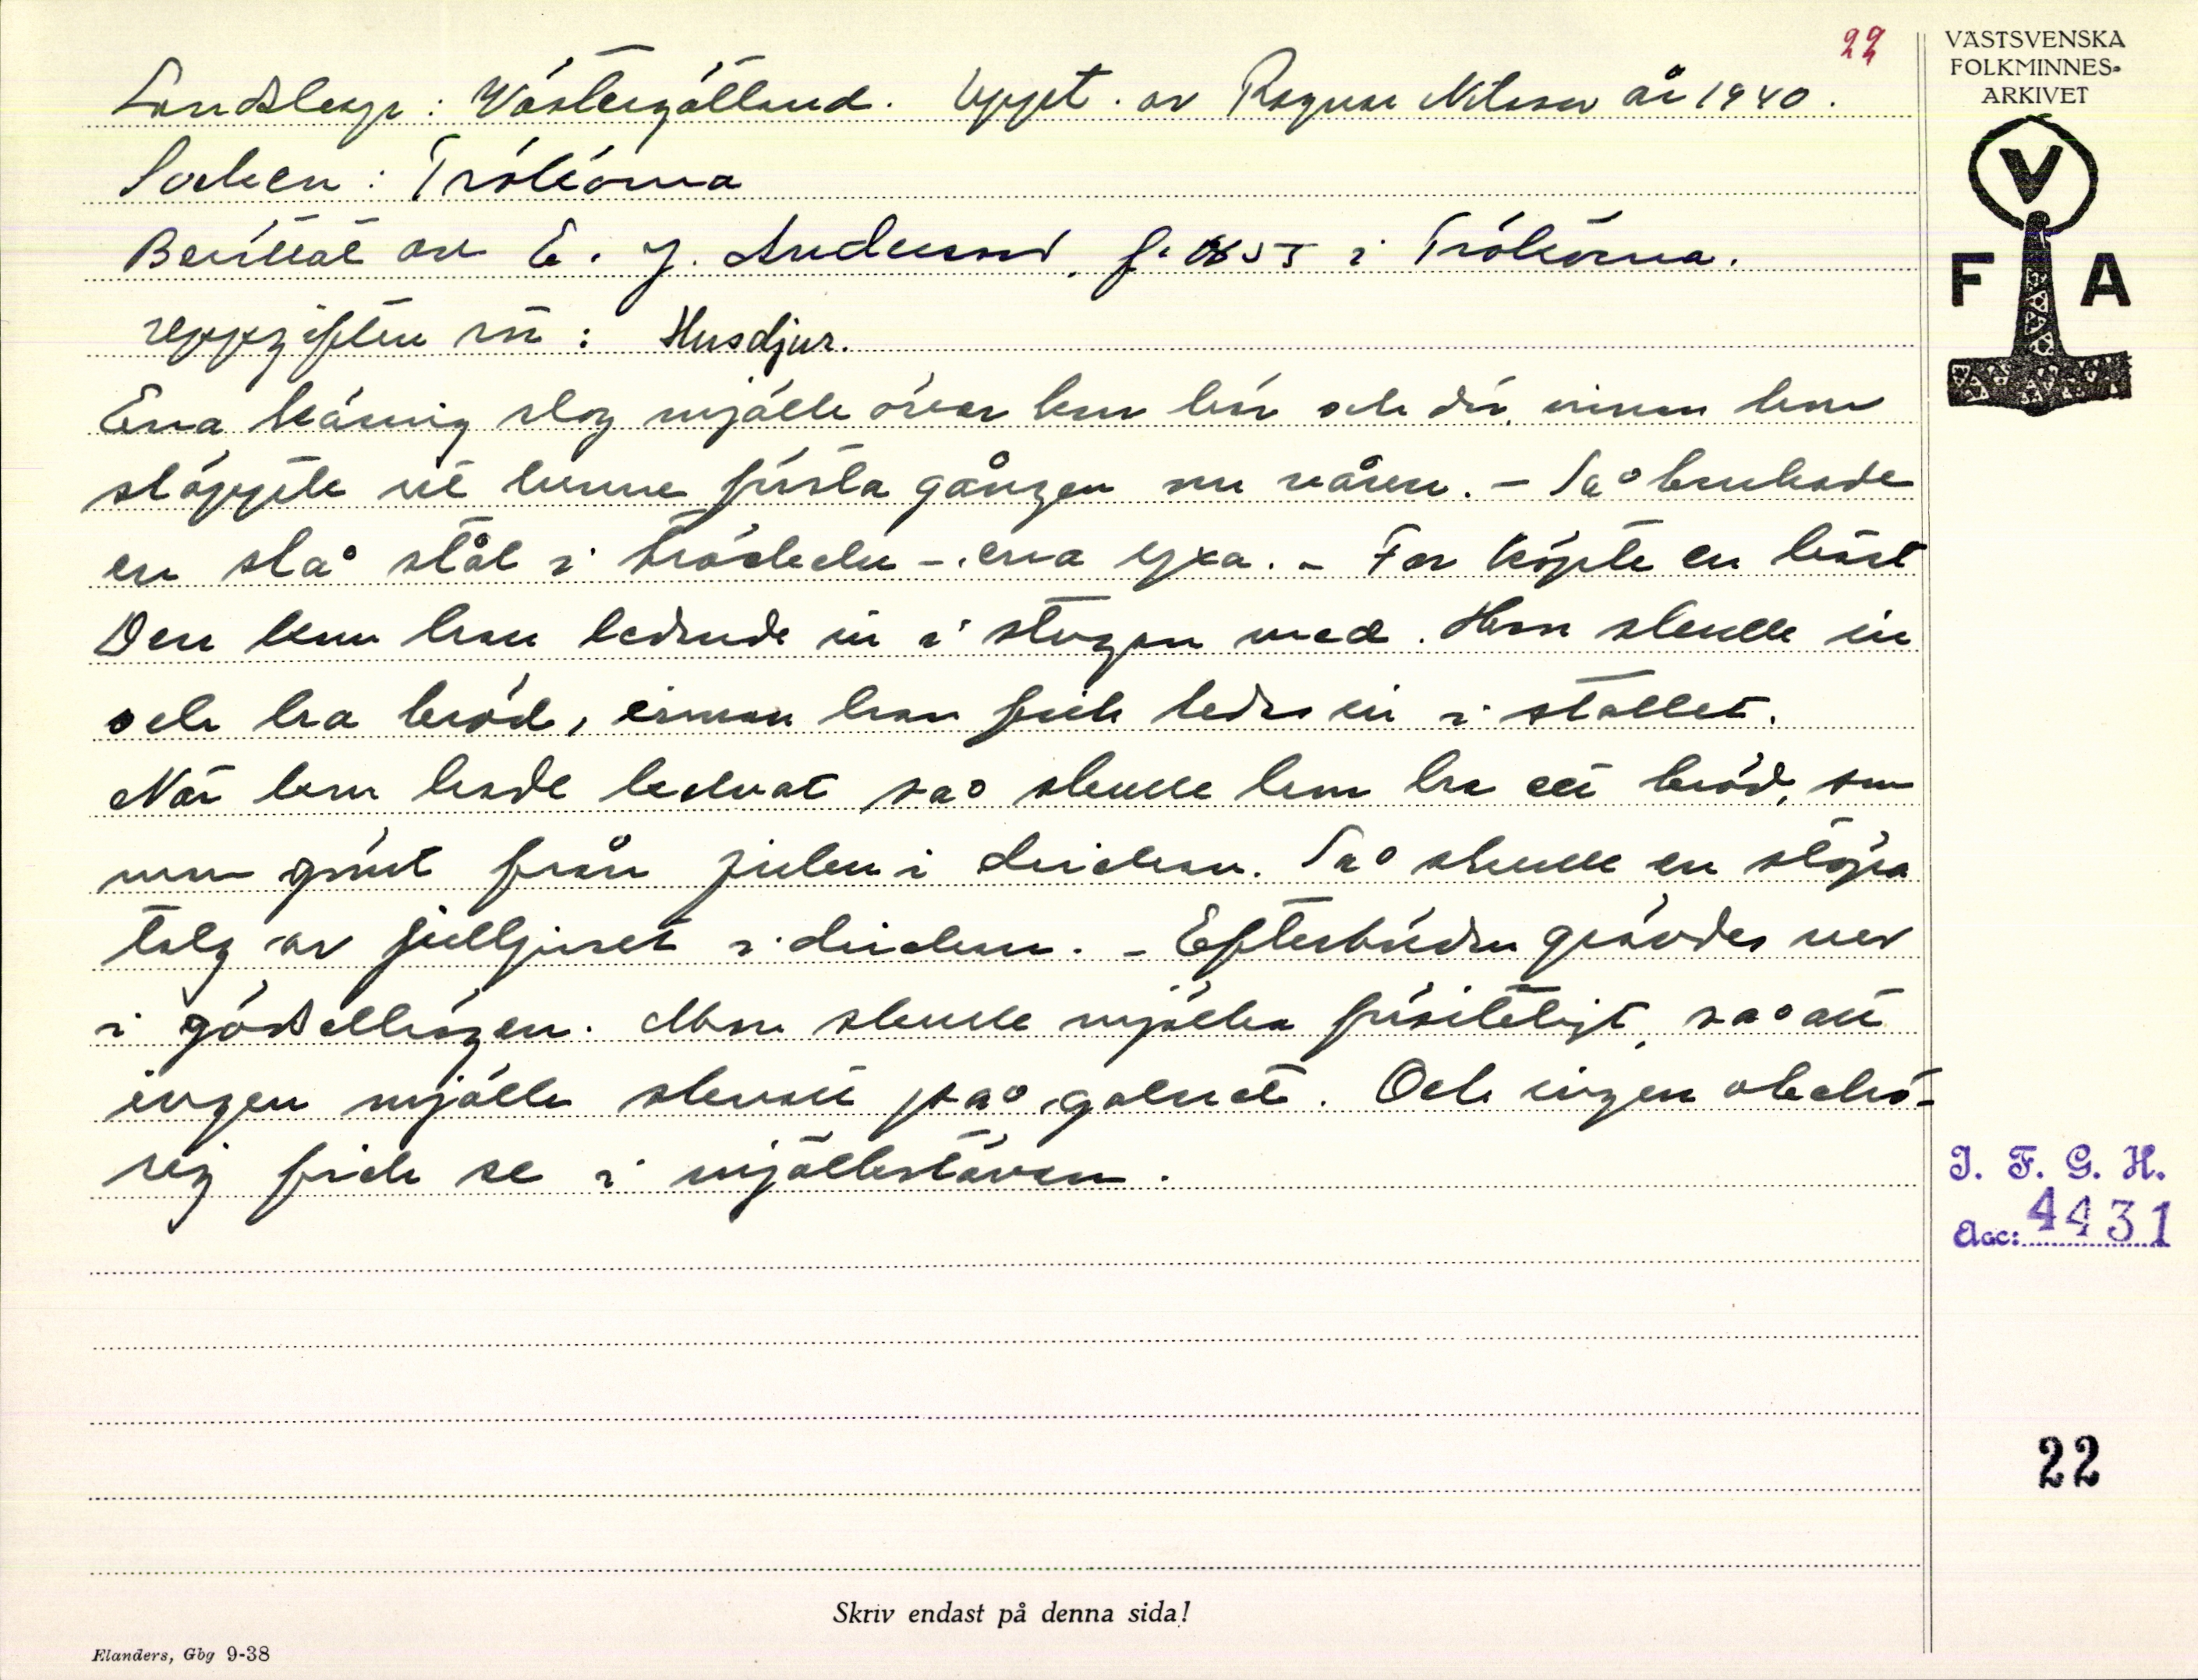 22
VÄSTSVENSKA
FOLKMINNES-
ARKIVET
V
F A
Landskap: Västergötland. Uppt. av Ragnar Nilsson år 1940.
Socken: Trökörna
Berättat av E. J. Andersson, f. 1855 i Trökörna.
Uppgiften rör: Husdjur.
Ena käring slog mjölk över kon där, innan hon
släppte ut henne första gången om våren. – Så brukade
en slå stål i tröskeln – ena yxa. – Far köpte en häst
Den kom han ledande in i stugan med. Han skulle in
och ha bröd, innan han fick leda in i stallet.
När kon hade kalvat så skulle hon ha ett bröd, som
var gömt från julen i drickan. Så skulle en stöpa
talg av julljuset i drickan. – Efterbörden grävdes ner
i gödselhögen. Man skulle mjölka försiktigt, så att
ingen mjölk skvätt på golvet. Och ingen obehö-
rig fick se i mjölkstävan.
I. F. G. H.
Acc: 4431
22
Skriv endast på denna sida!
Elanders, Gbg 9-38